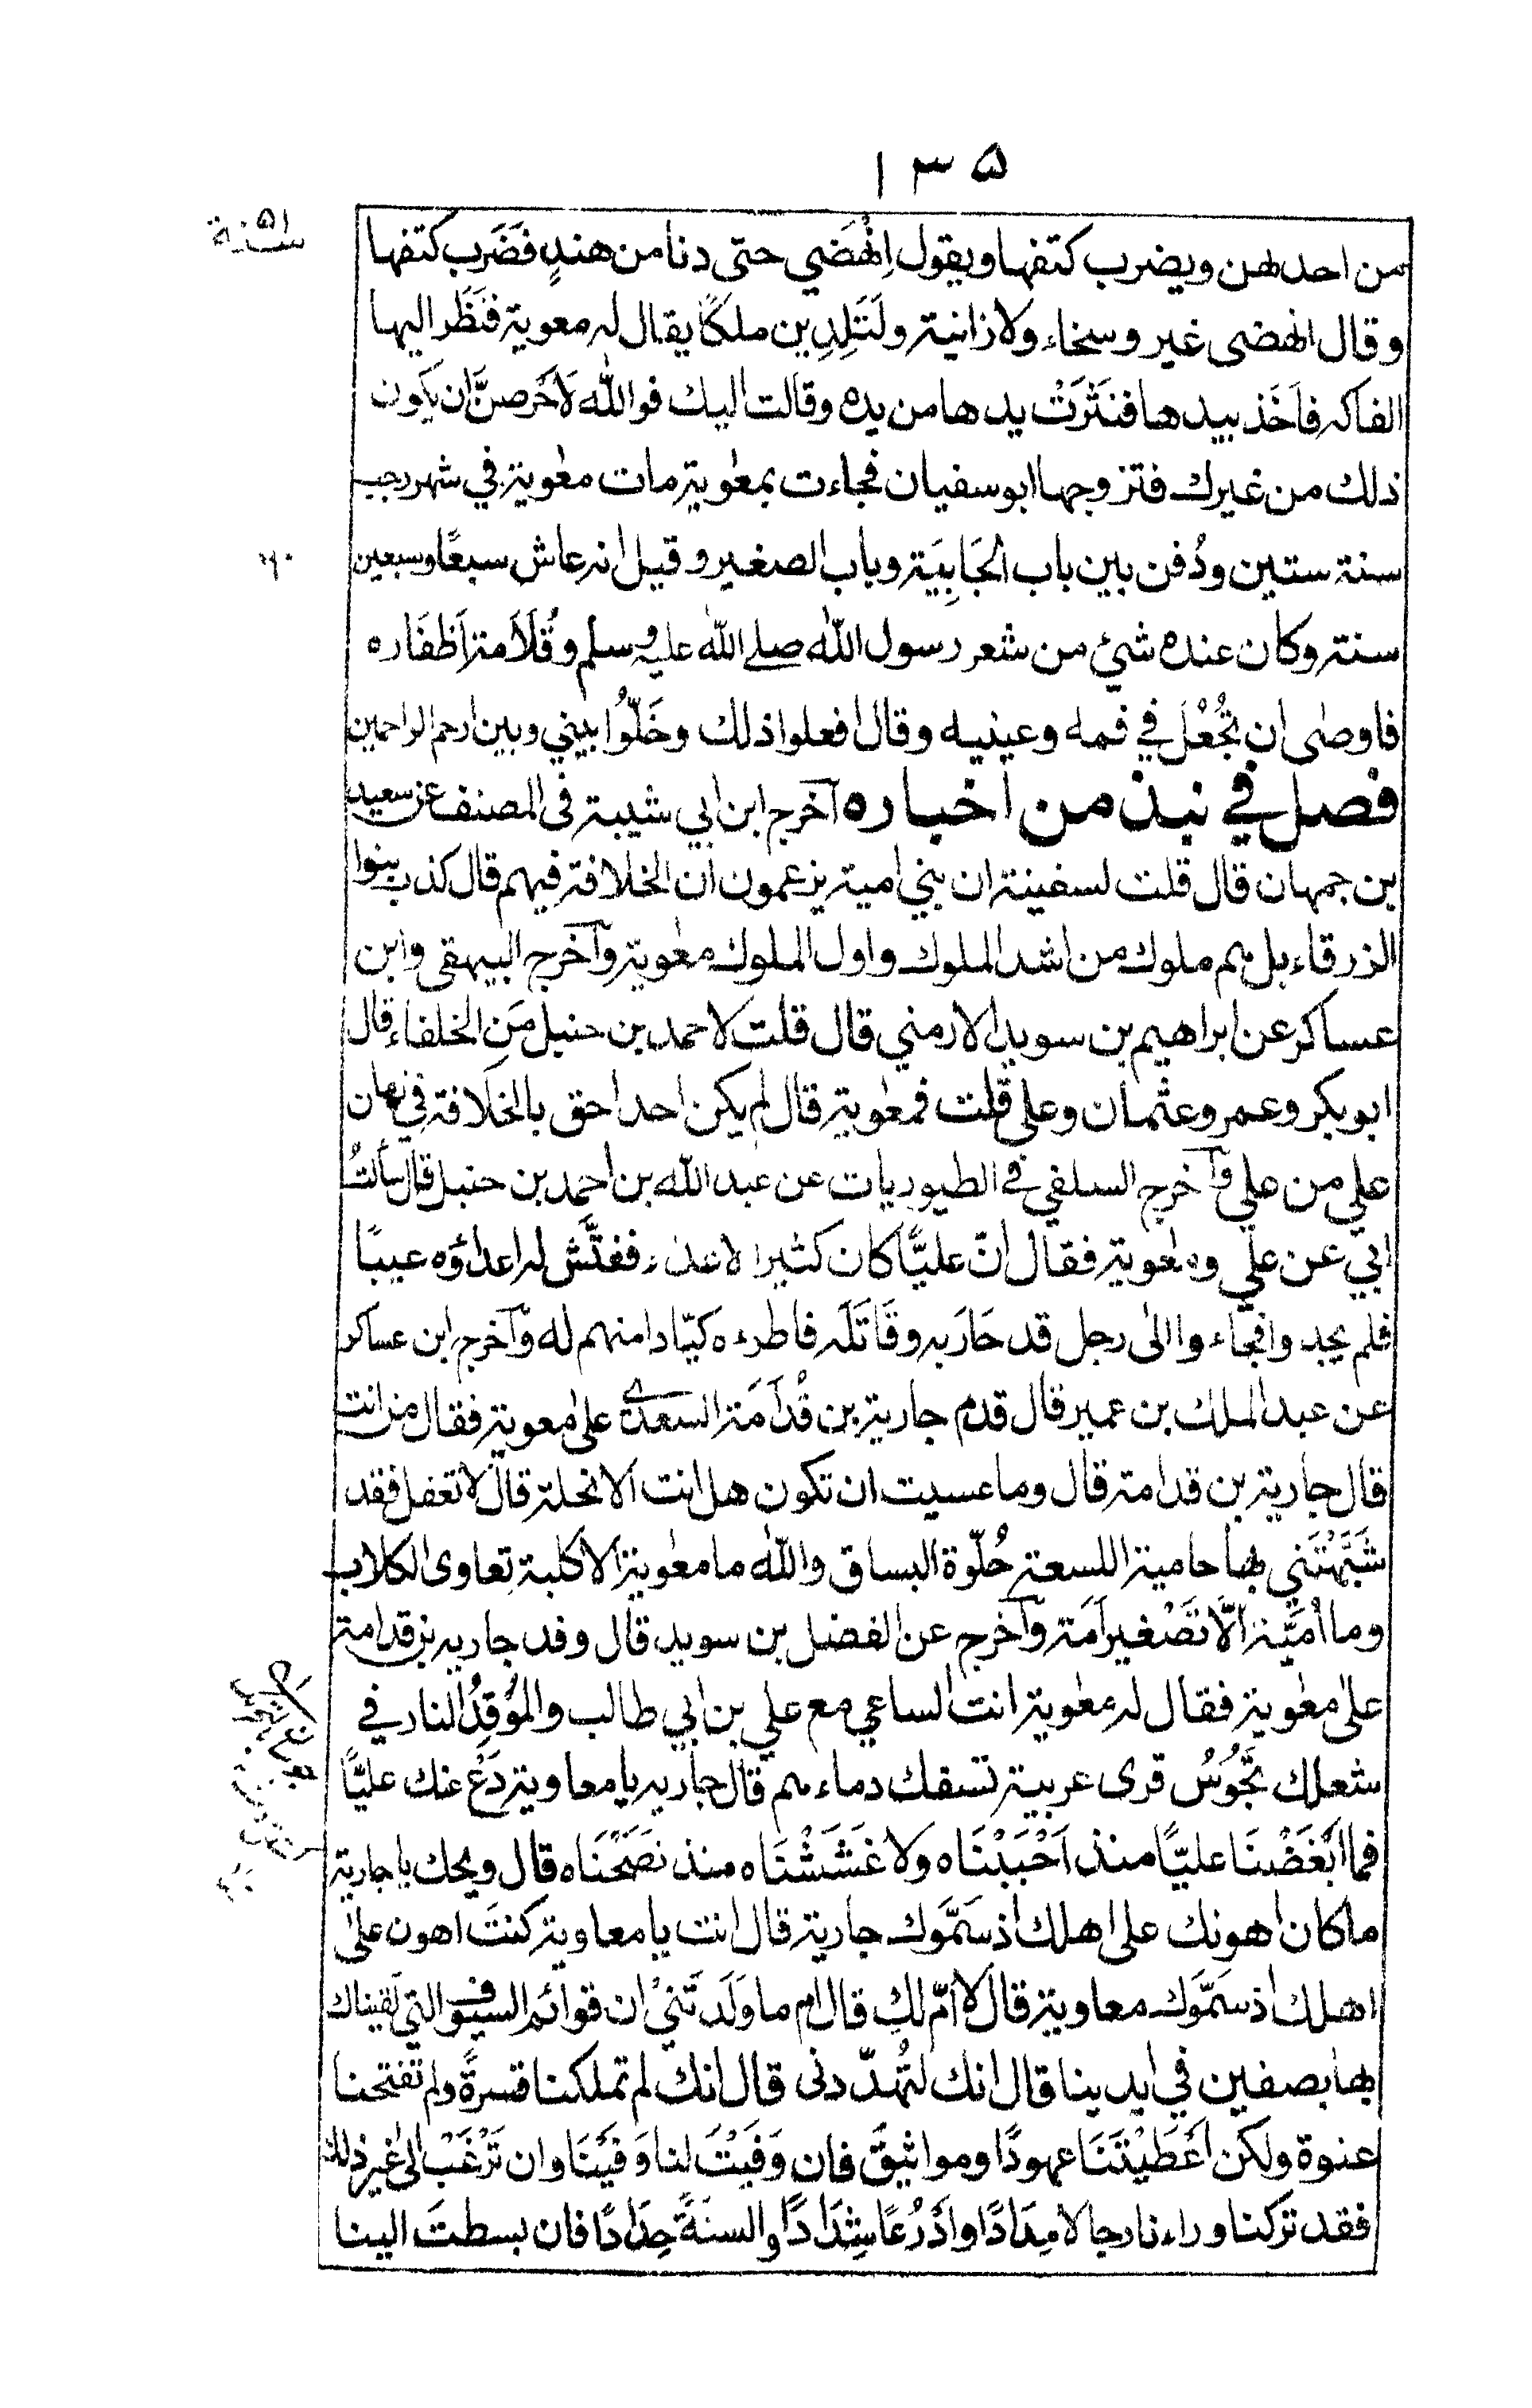 ١٣٥
سنة ٥١
من احدلهن ويضرب كتفها ويقول اِنْهَضي حتى دنا من هندٍ فَضَرب كتفها
وقال انهضى غير وسخاء ولا زانية ولَتَلِدِين ملكًا يقال له معوية فنَظَر اليها
الفاكه فاَخَذ بيدها فنَثَرَتْ يدها من يده وقالت اليك فوالله لاَحَرصنَّ ان يكون
ذلك من غيرك فتزوجها ابوسفيان فجاءت بمعٰوية مات معٰوية في شهر رجب
سنة ستين ودُفن بين باب الجَابِيَة وباب الصغير وقيل انه عاش سبعًا وسبعين
٦٠
سنة وكان عنده شئ من شعر رسول الله صلے الله عليه وسلم وقُلَاَمة اَظفَاره
فاوصٰى ان تُجْعَل في فمه وعينيه وقال افعلوا ذلك وخَلّوُا بيني وبين ارحم الراحمين
فصل في نبذ من اخباره آخرج ابن ابي شيبة فى المصنف عن سعيد
بن جمهان قال قلت لسفينة ان بني امية يزعمون ان الخلافة فيهم قال كذب بنوا
الزرقاء بل هم ملوك من اشد الملوك واول الملوك معٰوية وآخرج البيهقى وابن
عساكر عن ابراهيم بن سويد الارمني قال قلت لاحمد بن حنبل مَنِ الخلفاء قال
ابوبكر وعمر وعثمان وعلي قلت فمعٰوية قال لم يكن احد احق بالخلافة في زمان
علي من علي وآخرج السلفي في الطيوريات عن عبد الله بن احمد بن حنبل قال سألتُ
ابي عن علي ومعٰوية فقال انّ عليًّا كان كثير الاعداء ففتَّش له اعداؤه عيبًا
فلم يجدوا فجاءوا الى رجل قد حَارَبه وقَاتَلَه فاطروه كيّادا منهم له وآخرج ابن عساكر
عن عبد الملك بن عمير قال قدم جارية بن قُدَامَة السعدى علىٰ معوية فقال من انت
قال جارية بن قدامة قال وما عسيت ان تكون هل انت الا نحلة قال لا تعقل فقد
شَبَّهْتَني بها حامية اللسعة حُلّوة البساق والله ما معٰوية الا كلبة تعاوى الكلاب
وما اُمَيَّة الّا تَصْغير اَمَة وآخرج عن الفضل بن سويد قال وفد جاريه بن قدامة
علىٰ معٰوية فقال له معٰوية انت الساعي مع علي بن ابي طالب والمُوقِدُ النار في
شعلك تجُوسُ قرى عربية تسفك دماءهم قال جاريه يا معاوية دَعْ عنك عليًّا
فما ابْغَضْنَا عليًّا منذ اَحْبَبْنَاه ولا غَشَشْنَاه منذ نصَحْنَاه قال ويحك يا جارية
ما كان اهونك على اهلك اذ سَمَّوك جارية قال انت يا معاوية كنتَ اهون علىٰ
اهلك اذ سَمَّوك معاوية قال لا اُمّ لك قال ام ما وَلَدَتني ان قوائم السيوف التي لقيناك
بها بصفين في ايدينا قال انك لتُهدّدنى قال انك لم تملكنا قسرةً ولم تفتحنا
عنوة ولكن اَعْطَيْتَنَا عهودًا ومواثيق فان وَفَيْتَ لنا وَفَيْنَا وان تَرْغَبْ الى غير ذلك
فقد تركنا وراءنا رجالا مِدَادًا واَذْرُعًا شِدَادًا والسنةً حِدَادًا فان بسطتَ الينا